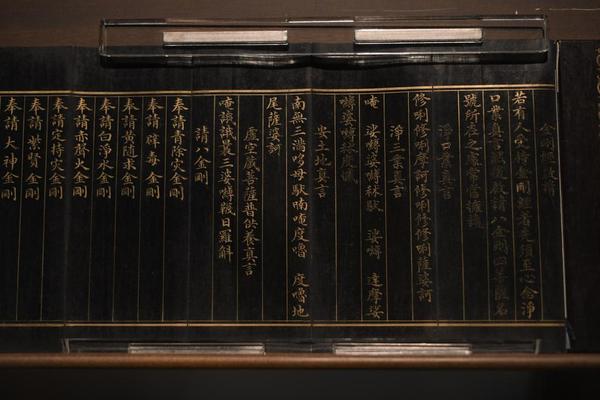 金剛經啟請
若有人受持金剛經者先須至心念淨
口業真言然後啟請八金剛四菩薩名
號所在之處常當擁護
淨口業真言
修唎修唎摩訶修唎修修唎薩婆訶
淨三業真言
唵 娑嚩婆嚩秫馱 娑嚩 達摩娑
嚩婆嚩秫度憾
安土地真言
南無三滿哆母馱喃唵度嚕 度嚕地
尾薩婆訶
虛空藏菩薩普供養真言
唵誐誐曩三婆嚩韈日囉斛
請八金剛
奉請青除灾金剛
奉請辟毒金剛
奉請黃隨求金剛
奉請白淨水金剛
奉請赤聲火金剛
奉請定持灾金剛
奉請紫賢金剛
奉請大神金剛